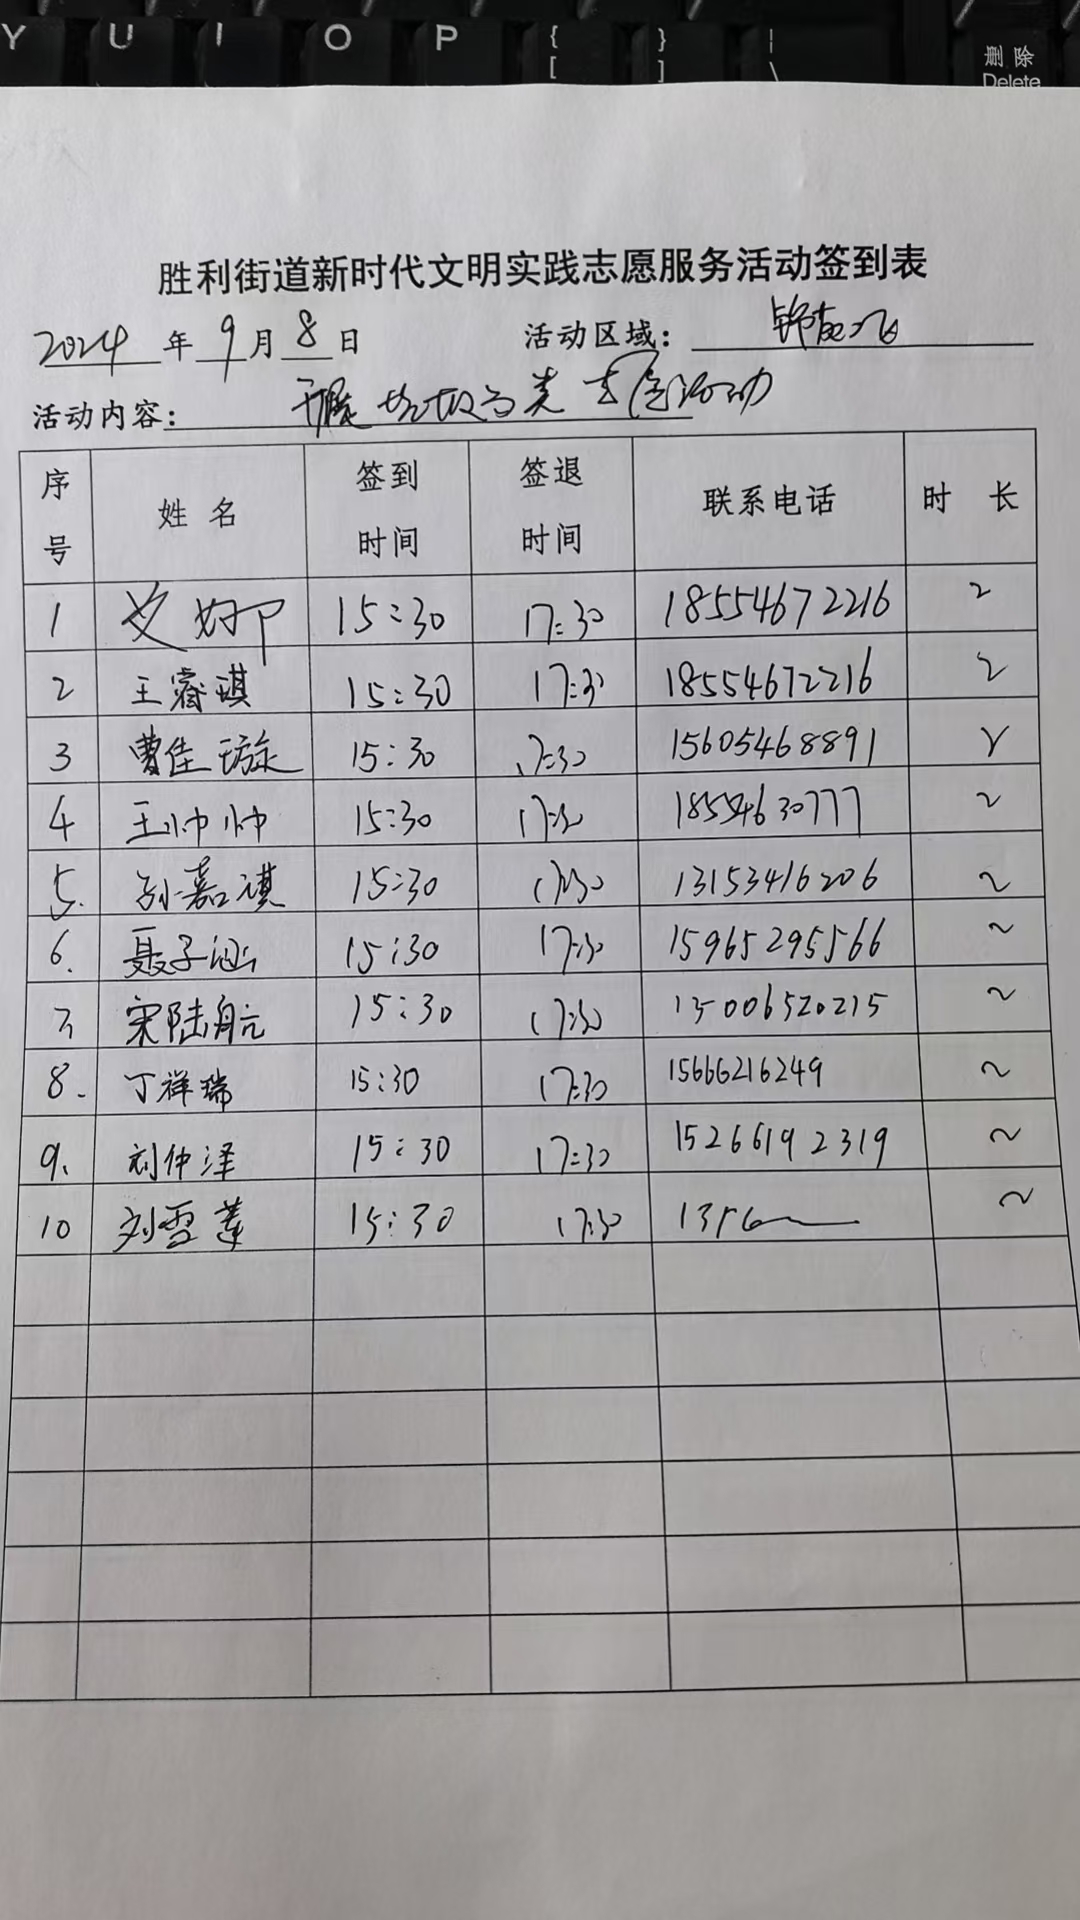 Y U I O P { [ } ] | \ 删除 Delete
胜利街道新时代文明实践志愿服务活动签到表
2024 年 9 月 8 日 活动区域：
活动内容：开展垃圾分类志愿活动
序号 姓名 签到时间 签退时间 联系电话 时长
1 艾娜 15:30 17:30 18554672216 2
2 王睿琪 15:30 17:30 18554672216 2
3 曹佳璇 15:30 17:30 15605468891 2
4 王帅帅 15:30 17:30 18554630777 2
5. 孙嘉淇 15:30 17:30 13153416206 2
6. 聂子涵 15:30 17:30 15965295566 2
7 宋陆航 15:30 17:30 15006520215 2
8. 丁祥瑞 15:30 17:30 15666216249 2
9. 刘仲泽 15:30 17:30 15266192319 2
10 刘雪莲 15:30 17:30 2